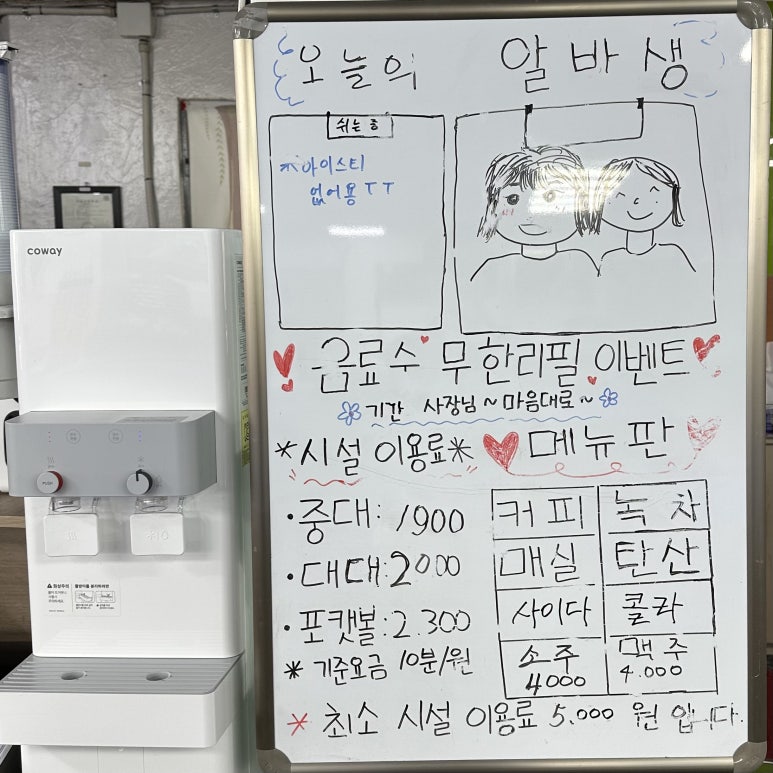 오늘의 알바생
쉬는 중
*아이스티
없어용 ㅜㅜ
음료수 무한리필 이벤트
기간 사장님~마음대로~
*시설 이용료* 메뉴판
·중대: 1900
·대대: 2000
·포캣볼: 2.300
* 기준요금 10분/원
커피 녹차
매실 탄산
사이다 콜라
소주 맥주
4000 4.000
* 최소 시설 이용료 5.000 원 입니다.
coway
PUSH